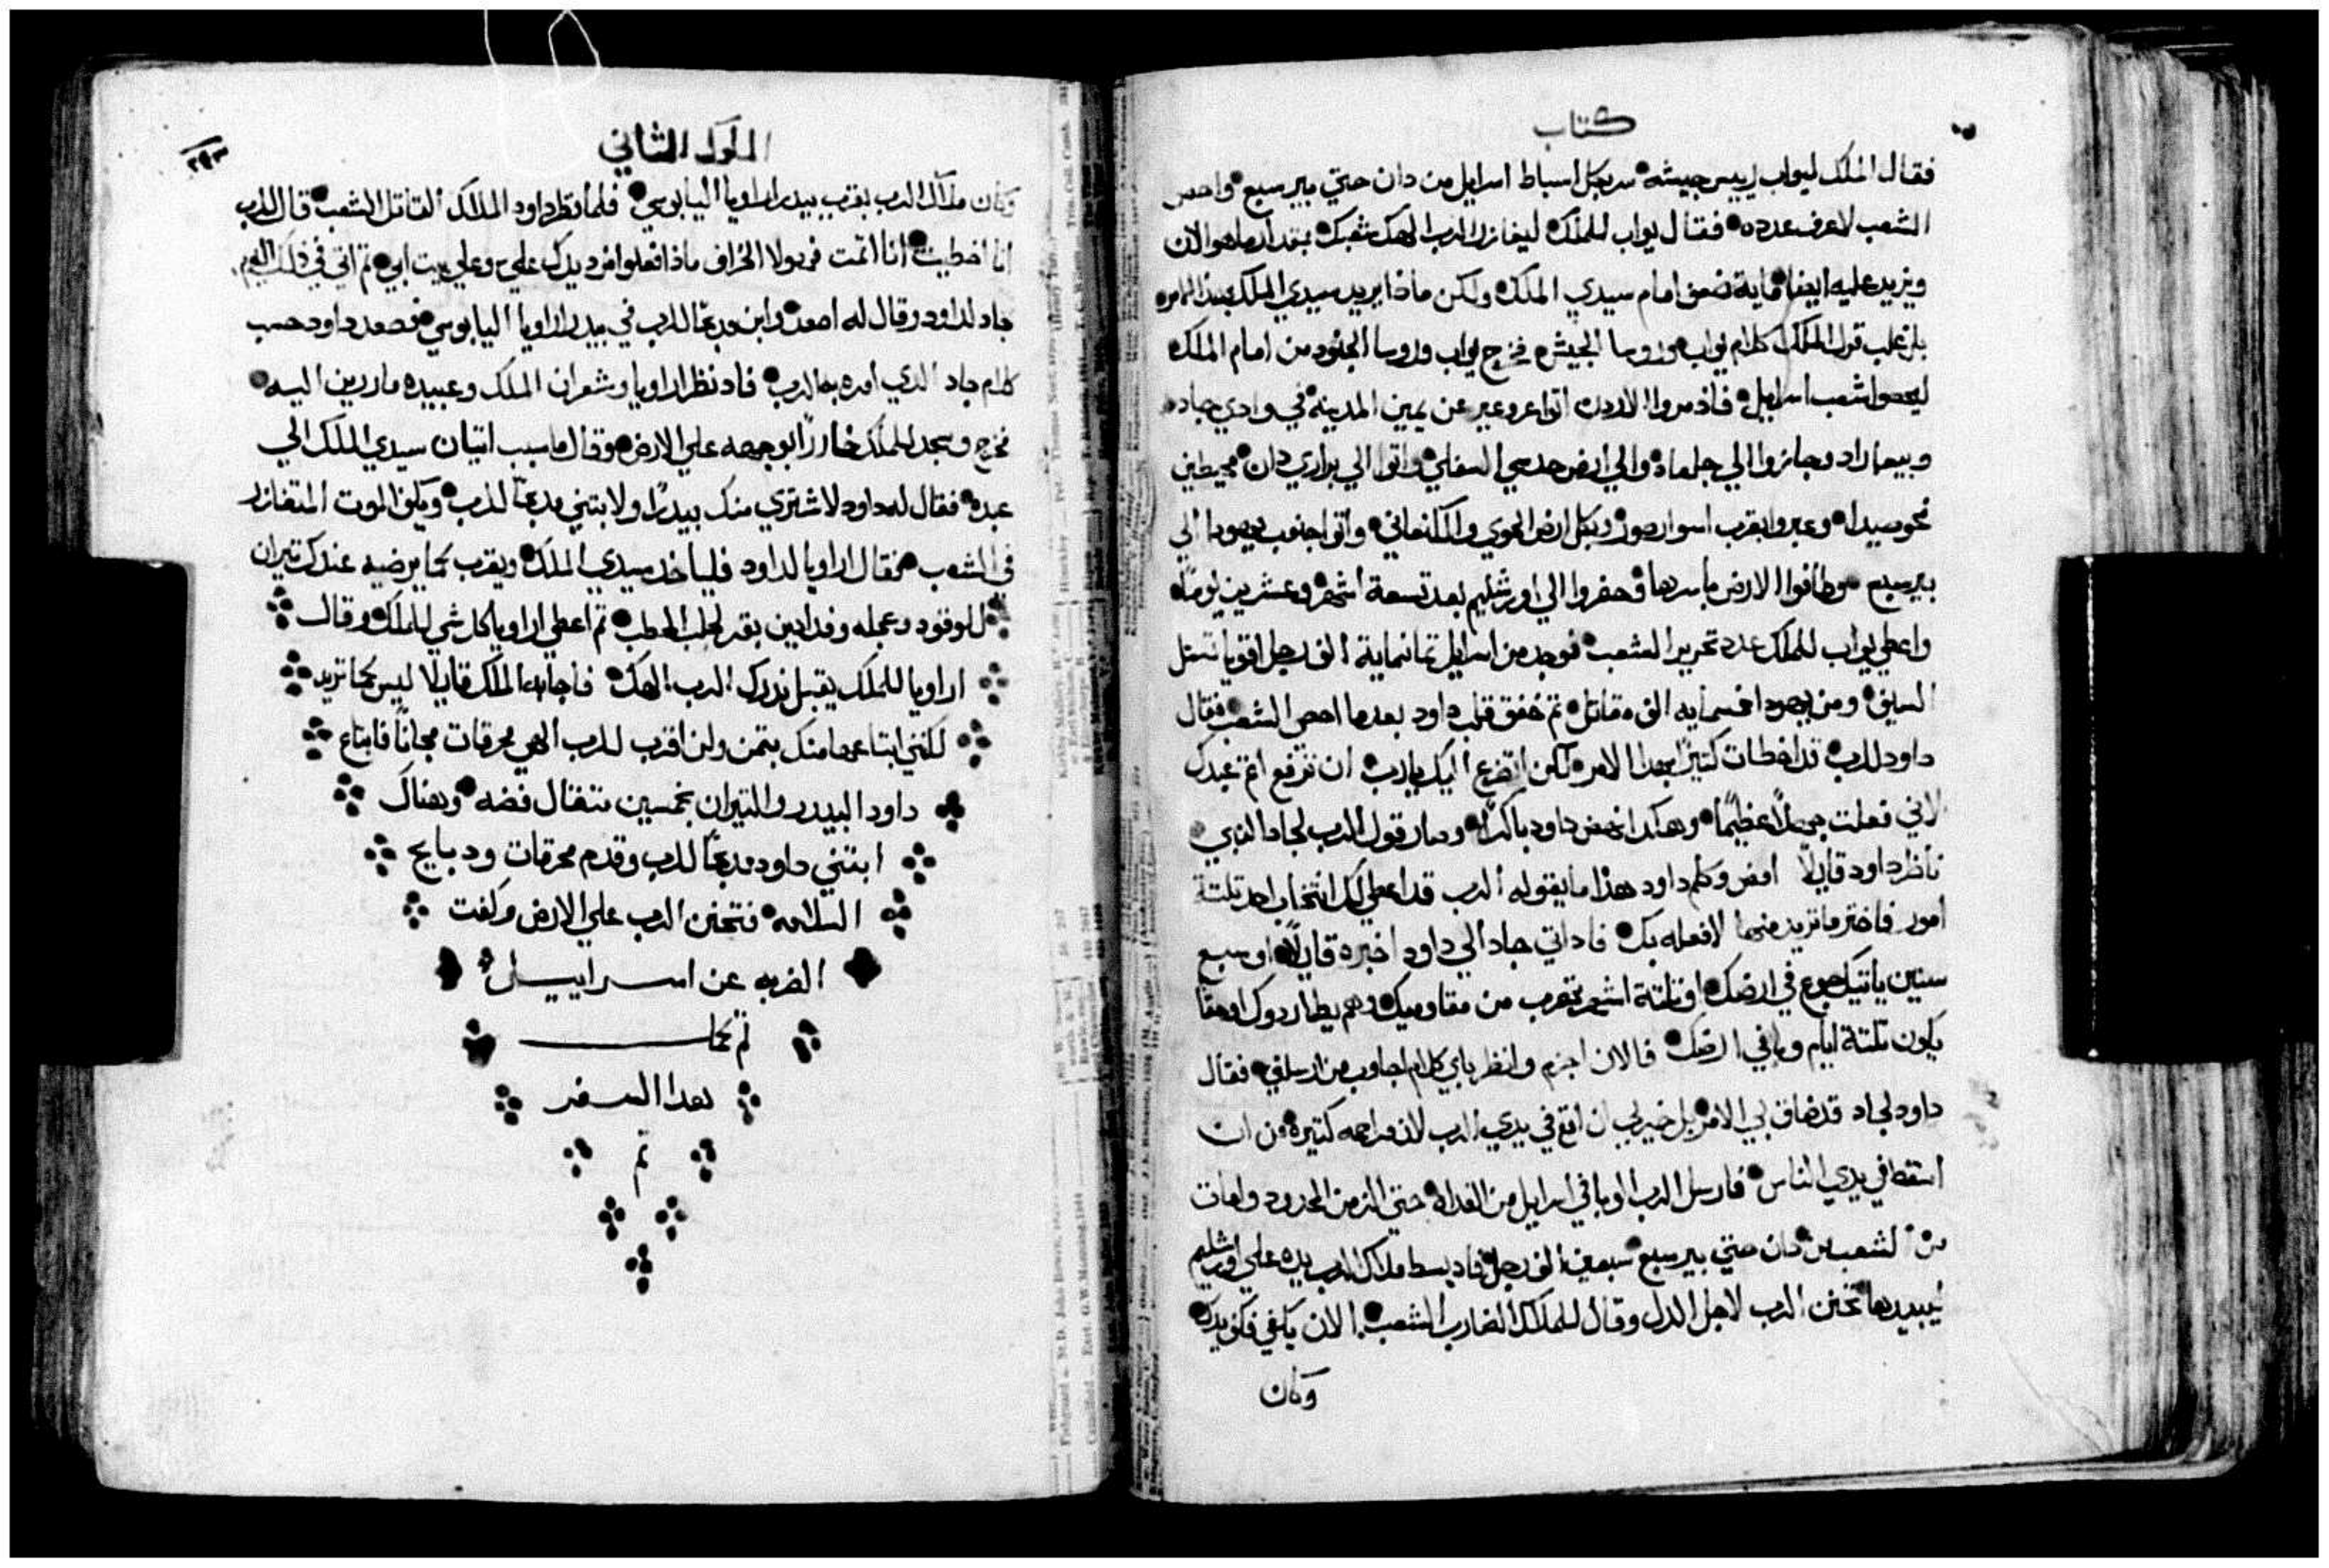 كتاب
فقال الملك ليواب رييس جيشه سر بكل اسباط اسرايل من دان حتي بير سبع واحص
الشعب لاعرف عدده فقال يواب للملك ليغازر الرب الهك شعبك بمقدار ما هو الان
ويزيد عليه ايضا ماية ضعف امام سيدي الملك ولكن ماذا يريد سيدي الملك بهذا الامر
بل غلب قول الملك كلام يواب وروسا الجيش فخرج يواب وروسا الجنود من امام الملك
ليحصوا شعب اسرايل فاذ مروا الاردن اتوا عروعير عن يمين المدينه في وادي جاد
وبيعازاد وجازوا الي جلعاد والي ارض حدسي السفلي واتوا الي براري دان محيطين
نحو صيدا وعبروا بقرب اسوار صور وبكل ارض الحوي والكنعاني واتوا جنوب يهودا الي
بير سبع وطافوا الارض باسرها وحضروا الي اورشليم بعد تسعة اشهر وعشرين يوما
واعطي يواب للملك عدد تحرير الشعب فوجد من اسرايل تمانماية الف رجل اقويا تستل
السيف ومن يهودا خمسمايه الف مقاتل تم خفق قلب داود بعدما احصي الشعب فقال
داود للرب قد اخطات كتيرًا بهدا الامر لكن اتضرع اليك يا رب ان ترفع اتم عبدك
لاني فعلت جهلًا عظيمًا وهكدا نهض داود باكرًا وصار قول الرب لجاد النبي
ناظر داود قايلًا امض وكلم داود هذا ما يقوله الرب قد اعطي لك انتخاب احد تلتة
امور فاختر ما تريد منها لافعله بك فاد اتي جاد الي داود اخبره قايلًا او سبع
سنين ياتيك جوع في ارضك او تلتة اشهر تهرب من مقاوميك وهم يطاردوك او حقا
يكون تلتة ايام وبا في ارضك فالان اجزم وانظر باي كلام اجاوب من ارسلني فقال
داود لجاد قد ضاق بي الامر بل خير لي ان اقع في يدي الرب لان مراحمه كتيرة من ان
اسقط في يدي الناس فارسل الرب الوبا في اسرايل من الغداه حتي الزمن المحدود ومات
من الشعب من دان حتي بير سبع سبعين الف رجل فاد بسط ملاك الرب يده علي اورشليم
ليبيدها تحنن الرب لاجل الدل وقال للملاك الضارب الشعب الان يكفي فكف يدك
وكان
الملوك الثاني
٢٩٣
وكان ملاك الرب بقرب بيدر اراويا اليابوسي فلما نظر داود الملاك القاتل الشعب قال للرب
انا اخطيت انا اتمت فهولا الخراف ماذا فعلوا فرد يدك علي وعلي بيت ابي تم اتي في ذلك اليوم
جاد لداود وقال له اصعد وابن مدبحًا للرب في بيدر اراويا اليابوسي فصعد داود حسب
كلام جاد الدي امره به الرب فاد نظر اراويا وشعر ان الملك وعبيده مارين اليه
فخرج وسجد للملك خارًا بوجهه علي الارض وقال ما سبب اتيان سيدي الملك الي
عبده فقال له داود لاشتري منك بيدرًا ولابتني مدبحًا للرب ويكف الموت المتفازر
في الشعب فقال اراويا لداود فلياخد سيدي الملك ويقرب كما يرضيه عندك تيران
للوقود وعجله وفدانين بقر لجلب الحطب تم اعطي اراويا كل شي للملك وقال
اراويا للملك يقبل ندرك الرب الهك فاجابه الملك قايلًا ليس كما تريد
لكنني ابتاعها منك بتمن ولن اقرب للرب الهي محرقات مجانًا فابتاع
داود البيدر والتيران بخمسين متقال فضه وهناك
ابتني داود مدبحًا للرب وقدم محرقات ودبايح
السلامه فتحنن الرب علي الارض وكفت
الضربه عن اسراييل
تم كما
هدا السفر
تم